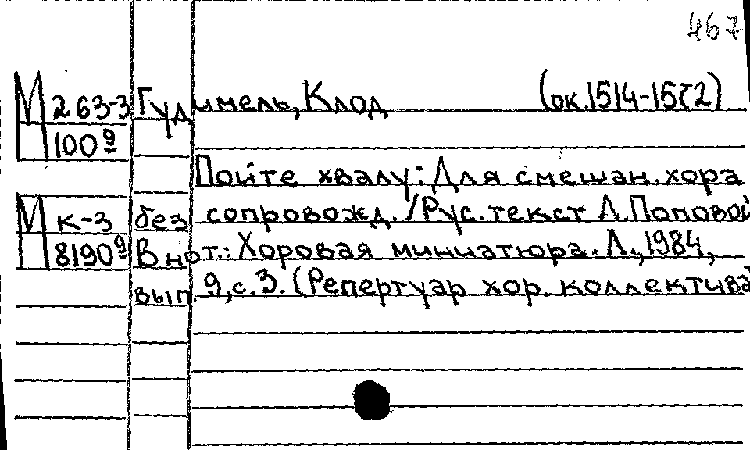 467
М 263-3 Гудимель, Клод (ок.1514-1572)
100 9
Пойте хвалу: Для смешан. хора
М к-3 без сопровожд. /Рус. текст Л. Поповой
8190 9 В нот.: Хоровая миниатюра. Л., 1984,
вып. 9, с. 3. (Репертуар хор. коллектива